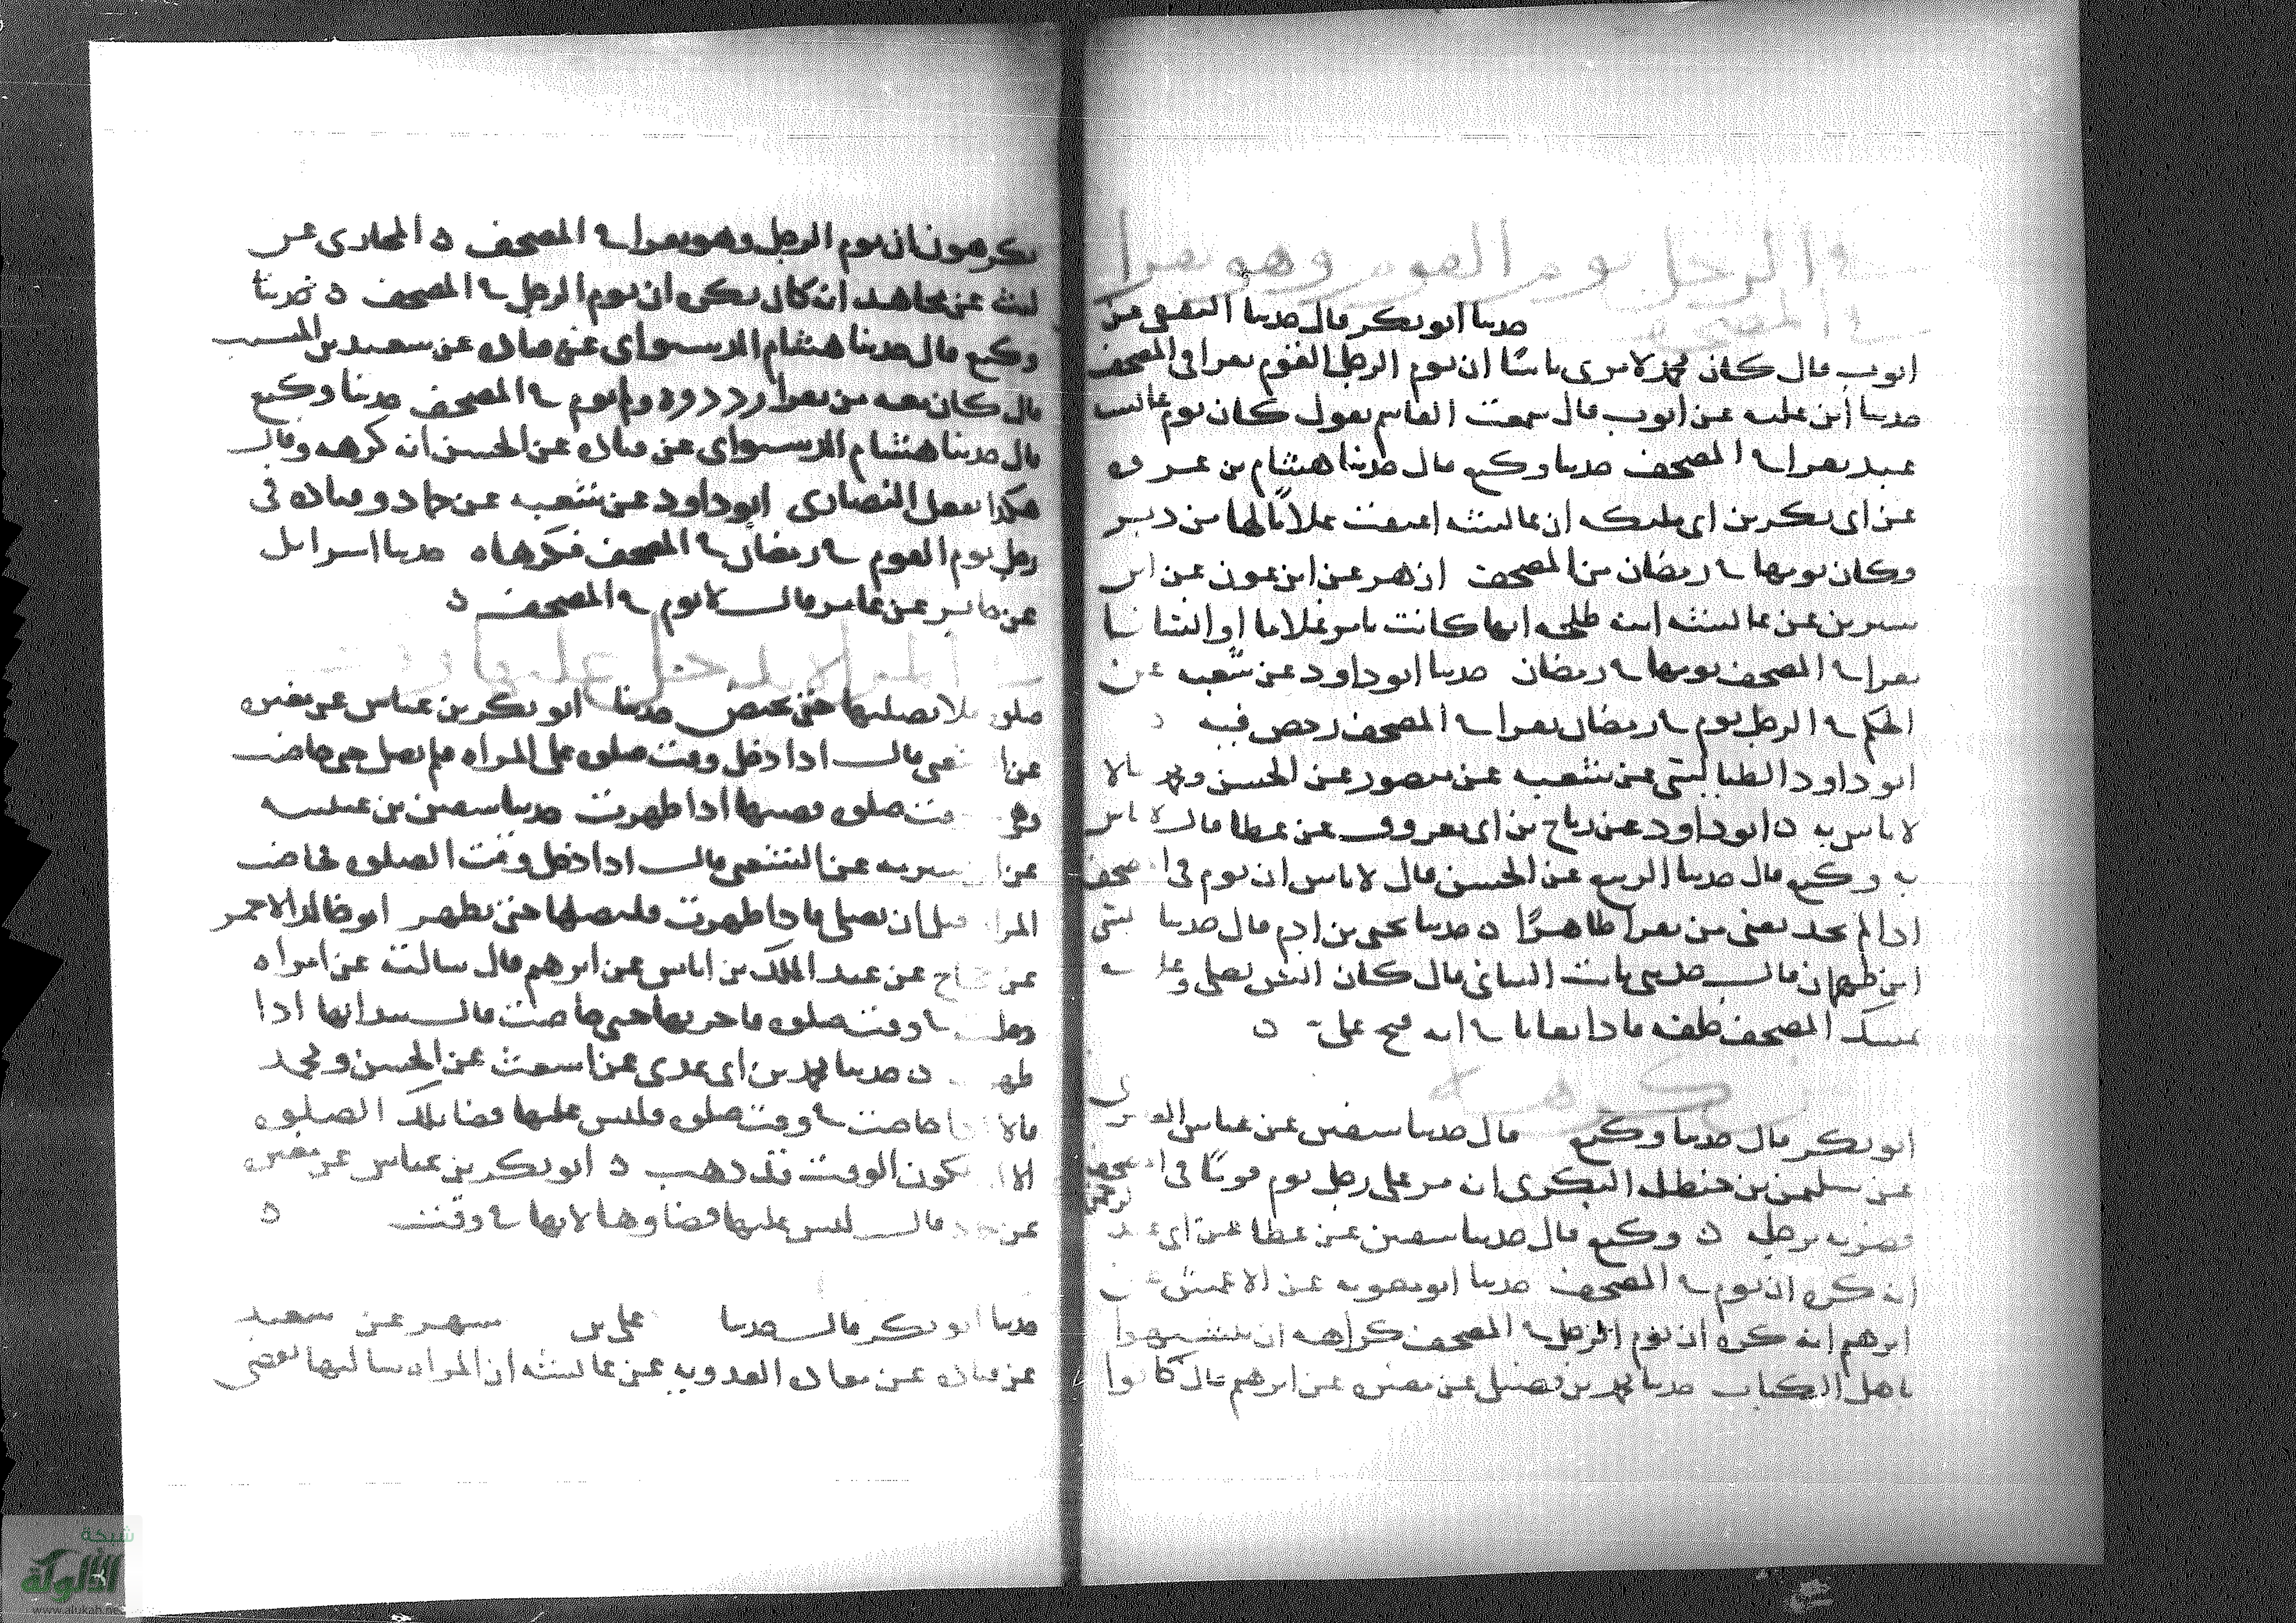 في الرجل يوم القوم وهو يقرا
في المصحف
حدثنا ابو بكر قال حدثنا الثقفي عن
ايوب قال كان محمد لا يرى باسا ان يوم الرجل القوم يقرا في المصحف
حدثنا ابن عليه عن ايوب قال سمعت القاسم يقول كان يوم عائشة
عبد يقرا في المصحف حدثنا وكيع قال حدثنا هشام بن عروة
عن ابي بكر بن ابي مليكه ان عائشه اعتقت غلاما لها من دبر
وكان يومها في رمضان من المصحف ازهر عن ابن عون عن ابن
سيرين عن عائشه ابنه طلحه انها كانت تامر غلاما او انسانا
يقرا في المصحف يومها في رمضان حدثنا ابو داود عن شعبه عن
الحكم في الرجل يوم في رمضان يقرا في المصحف رخص فيه ه
ابو داود الطيالسي عن شعبه عن منصور عن الحسن ومحمد قالا
لا باس به ه ابو داود عن رباح بن ابي معروف عن عطا قال لا باس
به وكيع قال حدثنا الربيع عن الحسن قال لا باس ان يوم في المصحف
اذا لم يجد يعني من يقرا ظاهرا ه حدثنا يحيى بن ادم قال حدثنا عيسى
ابن طهمان قال حدثني ثابت البناني قال كان انس يصلي وغلامه
يمسك المصحف خلفه فاذا تعايا في ايه فتح عليه ه
من كرهه
ابو بكر قال حدثنا وكيع قال حدثنا سفين عن عياش العامري
عن سليمن بن حنظله البكري انه مر على رجل يوم قوما في المصحف
فضربه برجله ه وكيع قال حدثنا سفين عن عطا عن ابي عبد الرحمن
انه كره ان يوم في المصحف حدثنا ابو معويه عن الاعمش عن
ابرهيم انه كره ان يوم الرجل في المصحف كراهه ان يتشبهوا
باهل الكتاب حدثنا محمد بن فضيل عن مغيره عن ابرهيم قال كانوا
يكرهون ان يوم الرجل وهو يقرا في المصحف ه المحاربي عن
ليث عن مجاهد انه كان يكره ان يوم الرجل في المصحف ه حدثنا
وكيع قال حدثنا هشام الدستواي عن قتاده عن سعيد بن المسيب
قال كان معه من يقرا رددوه ولم يوم في المصحف حدثنا وكيع
قال حدثنا هشام الدستواي عن قتاده عن الحسن انه كرهه وقال
هكذا تفعل النصارى ابو داود عن شعبه عن حماد وقتاده في
رجل يوم القوم في رمضان في المصحف فكرهاه حدثنا اسرايل
عن جابر عن عامر قال لا يوم في المصحف ه
في المراه يدخل عليها وقت
صلوه فلا تصليها حتى تحيض حدثنا ابو بكر بن عياش عن مغيره
عن الشعبي قال اذا دخل وقت صلوه على المراه فلم تصل حتى حاضت
وهي في وقت صلوه قضتها اذا طهرت حدثنا سفين بن عيينه
عن ابن شبرمه عن الشعبي قال اذا دخل وقت الصلوه فحاضت
المراه قبل ان تصلي فاذا طهرت فلتصلها حين تطهر ابو خالد الاحمر
عن حجاج عن عبد الملك بن اياس عن ابرهيم قال سالته عن امراه
دخلت في وقت صلوه فاخرتها حتى حاضت قال تبدا بها اذا
طهرت ه حدثنا محمد بن ابي عدي عن اشعث عن الحسن ومحمد
قالا اذا حاضت في وقت صلوه فليس عليها قضا تلك الصلوه
الا ان يكون الوقت قد ذهب ه ابو بكر بن عياش عن مغيره
عن حماد قال ليس عليها قضاوها لانها في وقت ه
حدثنا ابو بكر قال حدثنا علي بن مسهر عن سعيد
عن قتاده عن معاذه العدويه عن عائشه ان امراه سالتها تقضي
شبكة
الألوكة
www.alukah.net